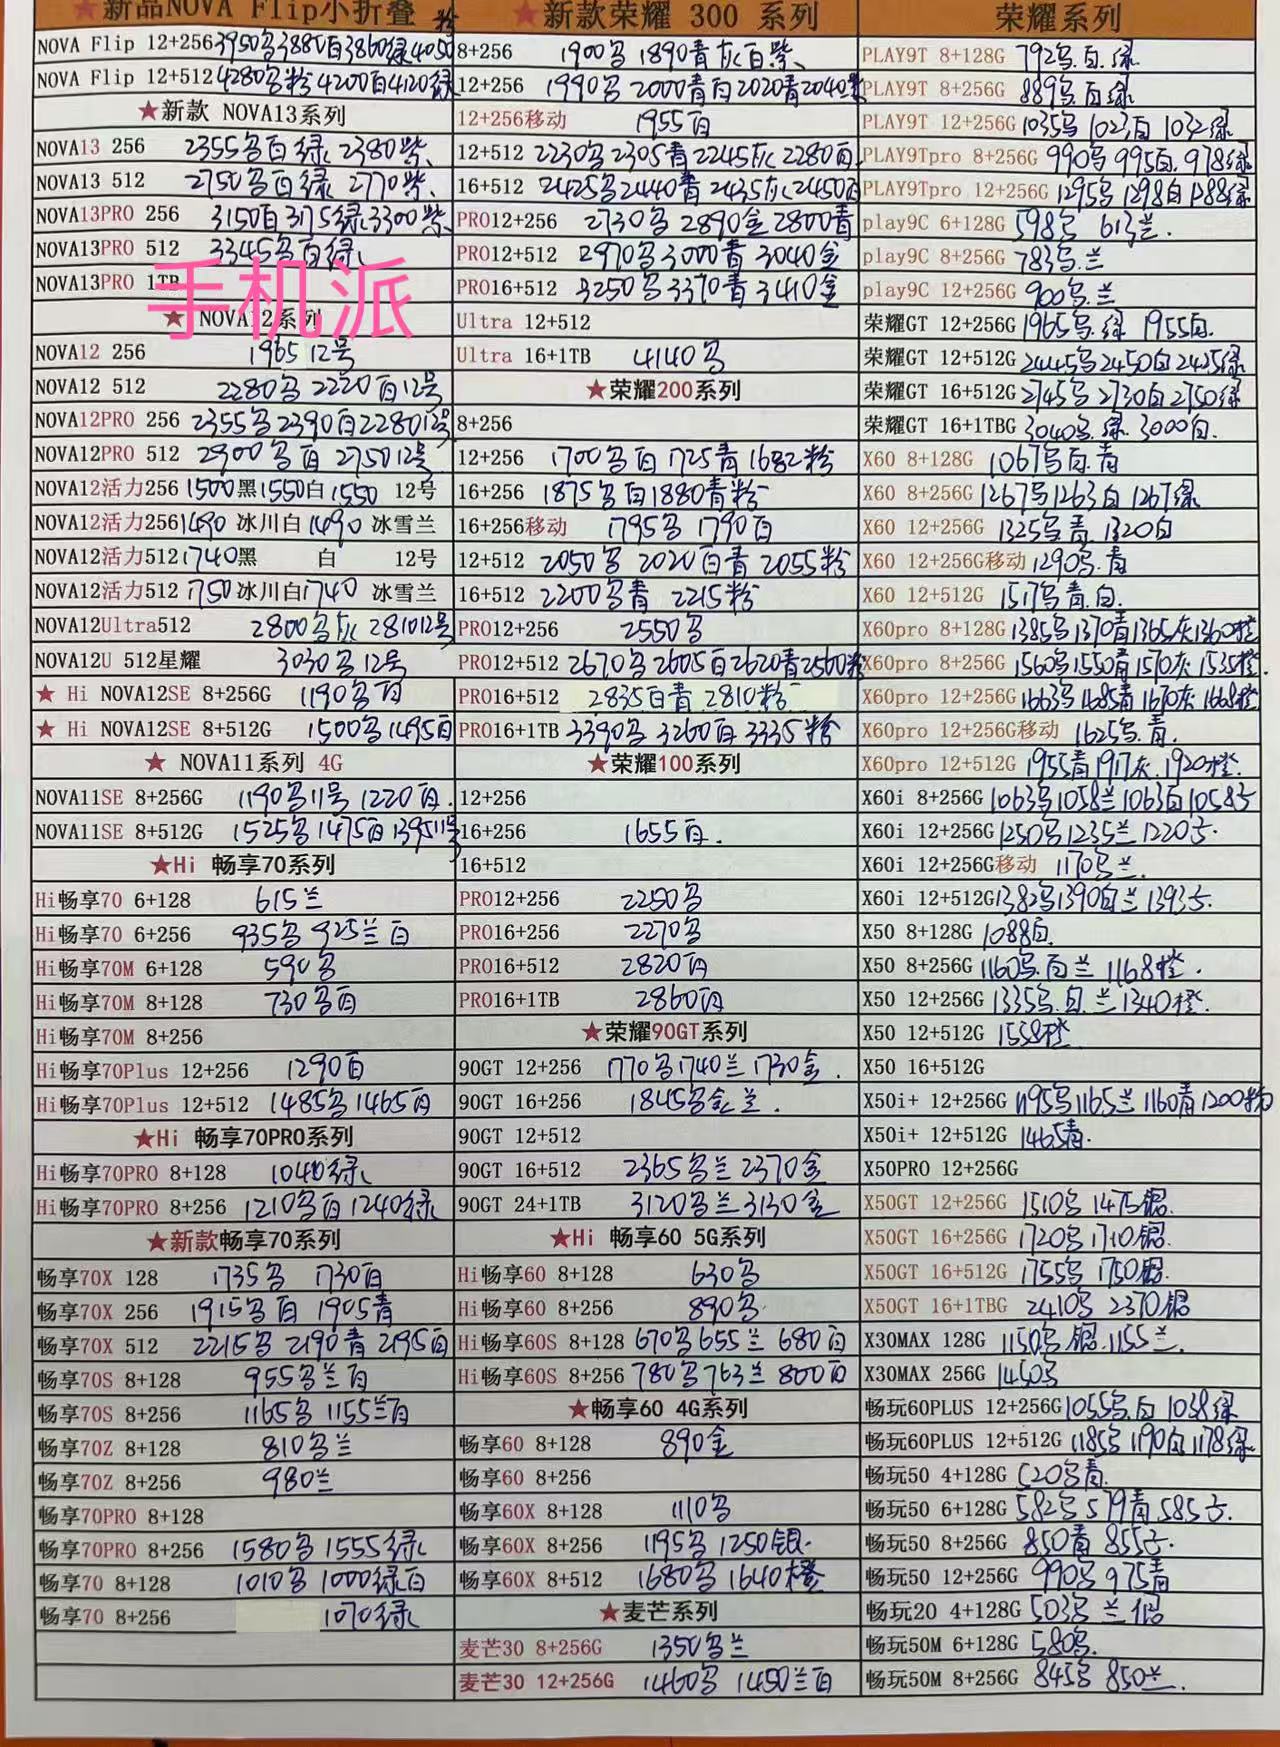 ★新品NOVA Flip小折叠
NOVA Flip 12+256 3950乌3880白3860绿4050粉
NOVA Flip 12+512 4280乌粉4200白4120绿
★新款 NOVA13系列
NOVA13 256 2355乌白绿 2380紫
NOVA13 512 2750乌白绿 2770紫
NOVA13PRO 256 3150白3175绿3300紫
NOVA13PRO 512 3345乌白绿
NOVA13PRO 1TB
手机派
★ NOVA12系列
NOVA12 256 1965 12号
NOVA12 512 2280乌 2220白12号
NOVA12PRO 256 2355乌2390白2280 12号
NOVA12PRO 512 2900乌白 2750 12号
NOVA12活力256 1500黑1550白1550 12号
NOVA12活力256 1490 冰川白1490 冰雪兰
NOVA12活力512 1740黑 白 12号
NOVA12活力512 1750冰川白1740 冰雪兰
NOVA12Ultra512 2800乌灰 2810 12号
NOVA12U 512星耀 3030乌12号
★ Hi NOVA12SE 8+256G 1190乌白
★ Hi NOVA12SE 8+512G 1500乌1495白
★ NOVA11系列 4G
NOVA11SE 8+256G 1190乌11号 1220白.
NOVA11SE 8+512G 1525乌1475白1395 11号
★Hi 畅享70系列
Hi畅享70 6+128 615兰
Hi畅享70 6+256 935乌 925兰白
Hi畅享70M 6+128 590乌
Hi畅享70M 8+128 730乌白
Hi畅享70M 8+256
Hi畅享70Plus 12+256 1290白
Hi畅享70Plus 12+512 1485乌1465白
★Hi 畅享70PRO系列
Hi畅享70PRO 8+128 1040绿
Hi畅享70PRO 8+256 1210乌白1240绿
★新款畅享70系列
畅享70X 128 1735乌 1730白
畅享70X 256 1915乌白 1905青
畅享70X 512 2215乌 2190青 2195白
畅享70S 8+128 955乌兰白
畅享70S 8+256 1165乌 1155兰白
畅享70Z 8+128 810乌兰
畅享70Z 8+256 980兰
畅享70PRO 8+128
畅享70PRO 8+256 1580乌 1555绿
畅享70 8+128 1010乌 1000绿白
畅享70 8+256 1070绿
★新款荣耀 300 系列
8+256 1900乌 1890青灰白紫
12+256 1990乌 2000青白2020青2040紫
12+256移动 1955白
12+512 2230乌2305青2245灰2280白
16+512 2425乌2440青2435灰2450白
PRO12+256 2730乌 2890金 2800青
PRO12+512 2970乌3000青 3040金
PRO16+512 3250乌3370青3410金
Ultra 12+512
Ultra 16+1TB 4140乌
★荣耀200系列
8+256
12+256 1700乌白1725青1682粉
16+256 1875乌白1880青粉
16+256移动 1795乌 1790白
12+512 2050乌 2020白青 2055粉
16+512 2200乌青 2215粉
PRO12+256 2550乌
PRO12+512 2670乌2605白2620青2560粉
PRO16+512 2835白青 2810粉
PRO16+1TB 3390乌 3260白 3335粉
★荣耀100系列
12+256
16+256 1655白.
16+512
PRO12+256 2250乌
PRO16+256 2270乌
PRO16+512 2820白
PRO16+1TB 2860白
★荣耀90GT系列
90GT 12+256 1770乌1740兰1730金.
90GT 16+256 1845乌金兰.
90GT 12+512
90GT 16+512 2365乌兰2370金
90GT 24+1TB 3120乌兰3130金
★Hi 畅享60 5G系列
Hi畅享60 8+128 630乌
Hi畅享60 8+256 890乌
Hi畅享60S 8+128 670乌655兰 680白
Hi畅享60S 8+256 780乌763兰 800白
★畅享60 4G系列
畅享60 8+128 890金
畅享60 8+256
畅享60X 8+128 1110乌
畅享60X 8+256 1195乌 1250银.
畅享60X 8+512 1680乌1640橙
★麦芒系列
麦芒30 8+256G 1350乌兰
麦芒30 12+256G 1460乌 1450兰白
荣耀系列
PLAY9T 8+128G 792乌.白.绿
PLAY9T 8+256G 889乌.白绿
PLAY9T 12+256G 1035乌 1023白 1032绿
PLAY9Tpro 8+256G 990乌 995白.978绿
PLAY9Tpro 12+256G 1295乌1298白1288绿
play9C 6+128G 598乌 613兰.
play9C 8+256G 783乌.兰
play9C 12+256G 900乌.兰
荣耀GT 12+256G 1965乌.绿 1955白.
荣耀GT 12+512G 2445乌2450白2425绿
荣耀GT 16+512G 2745乌 2730白2750绿
荣耀GT 16+1TBG 3040乌.绿.3000白.
X60 8+128G 1067乌白.青
X60 8+256G 1267乌1263白 1267绿
X60 12+256G 1325乌 青.1320白
X60 12+256G移动 1290乌.青
X60 12+512G 1517乌青.白.
X60pro 8+128G 1385乌1370青1365灰1360橙
X60pro 8+256G 1560乌1550青1570灰1535橙
X60pro 12+256G 1663乌1685青1670灰1668橙
X60pro 12+256G移动 1625乌.青.
X60pro 12+512G 1955青1917灰.1920橙.
X60i 8+256G 1063乌1058兰1063白1058云
X60i 12+256G 1250乌1235兰1220云.
X60i 12+256G移动 1170乌兰.
X60i 12+512G 1382乌1390白兰1393云.
X50 8+128G 1088白.
X50 8+256G 1160乌.白兰 1168橙.
X50 12+256G 1335乌.白.兰1340橙.
X50 12+512G 1558橙
X50 16+512G
X50i+ 12+256G 1195乌1165兰1160青1200粉
X50i+ 12+512G 1465青.
X50PRO 12+256G
X50GT 12+256G 1510乌 1475银.
X50GT 16+256G 1720乌1710银.
X50GT 16+512G 1755乌 1750银.
X50GT 16+1TBG 2410乌 2370银
X30MAX 128G 1150乌.银.1155兰.
X30MAX 256G 1450乌
畅玩60PLUS 12+256G 1055乌.白 1038绿
畅玩60PLUS 12+512G 1185乌1190白1178绿
畅玩50 4+128G 520乌青.
畅玩50 6+128G 582乌 579青 585云.
畅玩50 8+256G 850青 855云.
畅玩50 12+256G 990乌 975青
畅玩20 4+128G 503乌 兰 银
畅玩50M 6+128G 580乌.
畅玩50M 8+256G 845乌 850兰.